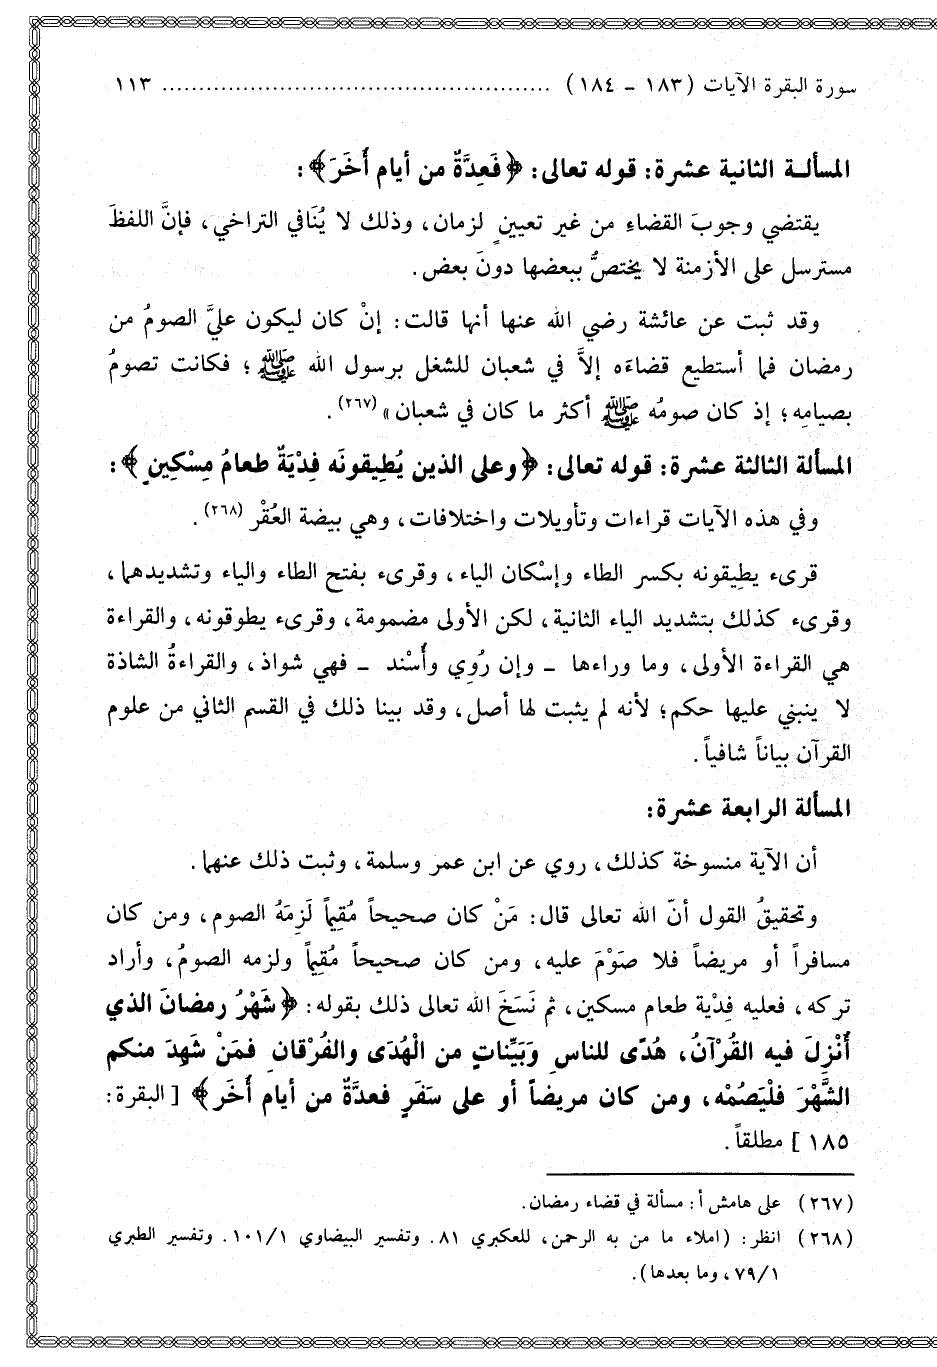 سورة البقرة الآيات (١٨٣ - ١٨٤) .................................................... ١١٣
المسألـة الثانية عشرة: قوله تعالى: ﴿فَعِدَّةٌ من أيام أُخَرَ﴾:
يقتضي وجوبَ القضاءِ من غير تعيينٍ لزمان، وذلك لا يُنَافي التراخي، فإنَّ اللفظَ
مسترسل على الأزمنة لا يختصُّ ببعضها دونَ بعض.
وقد ثبت عن عائشة رضي الله عنها أنها قالت: إنْ كان ليكون عليَّ الصومُ من
رمضان فما أستطيع قضاءَه إلاَّ في شعبان للشغل برسول الله ﷺ؛ فكانت تصومُ
بصيامِه؛ إذ كان صومُه ﷺ أكثر ما كان في شعبان» (٢٦٧).
المسألة الثالثة عشرة: قوله تعالى: ﴿وعلى الذين يُطِيقونَه فِدْيَةٌ طعامُ مِسْكِينٍ﴾:
وفي هذه الآيات قراءات وتأويلات واختلافات، وهي بيضة العُقْر (٢٦٨).
قرىء يطِيقونه بكسر الطاء وإسْكان الياء، وقرىء بفتح الطاء والياء وتشديدهما،
وقرىء كذلك بتشديد الياء الثانية، لكن الأولى مضمومة، وقرىء يطوقونه، والقراءة
هي القراءة الأولى، وما وراءها - وإن رُوِي وأُسْند - فهي شواذ، والقراءةُ الشاذة
لا ينبني عليها حكم؛ لأنه لم يثبت لها أصل، وقد بينا ذلك في القسم الثاني من علوم
القرآن بياناً شافياً.
المسألة الرابعة عشرة:
أن الآية منسوخة كذلك، روي عن ابن عمر وسلمة، وثبت ذلك عنهما.
وتحقيقُ القول أنّ الله تعالى قال: مَنْ كان صحيحاً مُقِيماً لَزِمَهُ الصوم، ومن كان
مسافراً أو مريضاً فلا صَوْمَ عليه، ومن كان صحيحاً مُقِيماً ولزمه الصومُ، وأراد
تركه، فعليه فِدْية طعام مسكين، ثم نَسَخَ الله تعالى ذلك بقوله: ﴿شَهْرُ رمضانَ الذي
أُنْزِلَ فيه القُرْآنُ، هُدًى للناسِ وَبَيِّناتٍ من الْهُدَى والفُرْقانِ فمَنْ شَهِدَ منكم
الشَّهْرَ فلْيَصُمْه، ومن كان مريضاً أو على سَفَرٍ فعدَّةٌ من أيام أُخَر﴾ [البقرة:
١٨٥] مطلقاً.
(٢٦٧) على هامش أ: مسألة في قضاء رمضان.
(٢٦٨) انظر: (املاء ما من به الرحمن، للعكبري ٨١. وتفسير البيضاوي ١٠١/١. وتفسير الطبري
٧٩/١، وما بعدها).